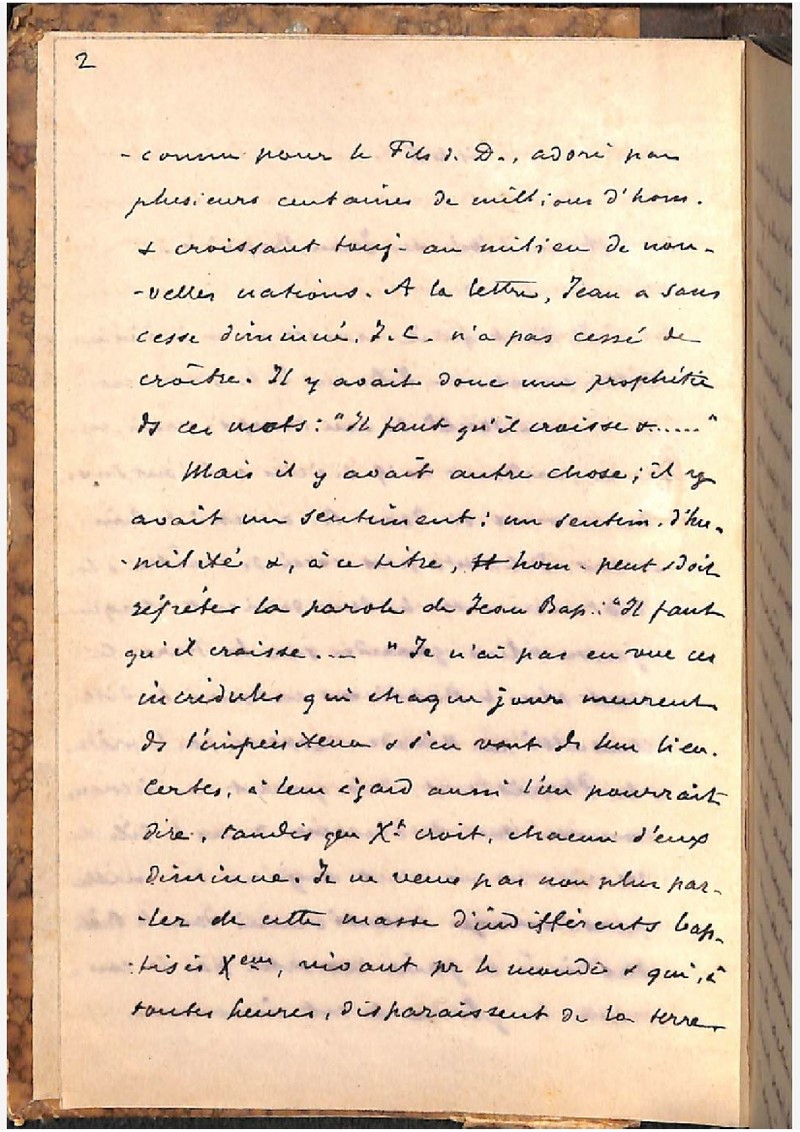 2
- connu pour le Fils d. D., adoré par
plusieurs centaines de millions d'hom.
& croissant touj. au milieu de nou-
-velles nations. A la lettre, Jean a sans
cesse diminué. J.C. n'a pas cessé de
croître. Il y avait donc une prophétie
ds ces mots : "Il faut qu'il croisse &....."
Mais il y avait autre chose ; il y
avait un sentiment : un sentim. d'hu-
-milité &, à ce titre, tt hom. peut & doit
répéter la parole de Jean Bap. : "Il faut
qu'il croisse... " Je n'ai pas en vue ces
incrédules qui chaque jour meurent
ds l'impénitence & s'en vont ds leur lieu.
Certes, à leur égard aussi l'on pourrait
dire, tandis que Xt croit, chacun d'eux
diminue. Je ne veux pas non plus par-
-ler de cette masse d'indifférents bap-
-tisés Xens, vivant pr le monde & qui, à
toutes heures, disparaissent de la terre